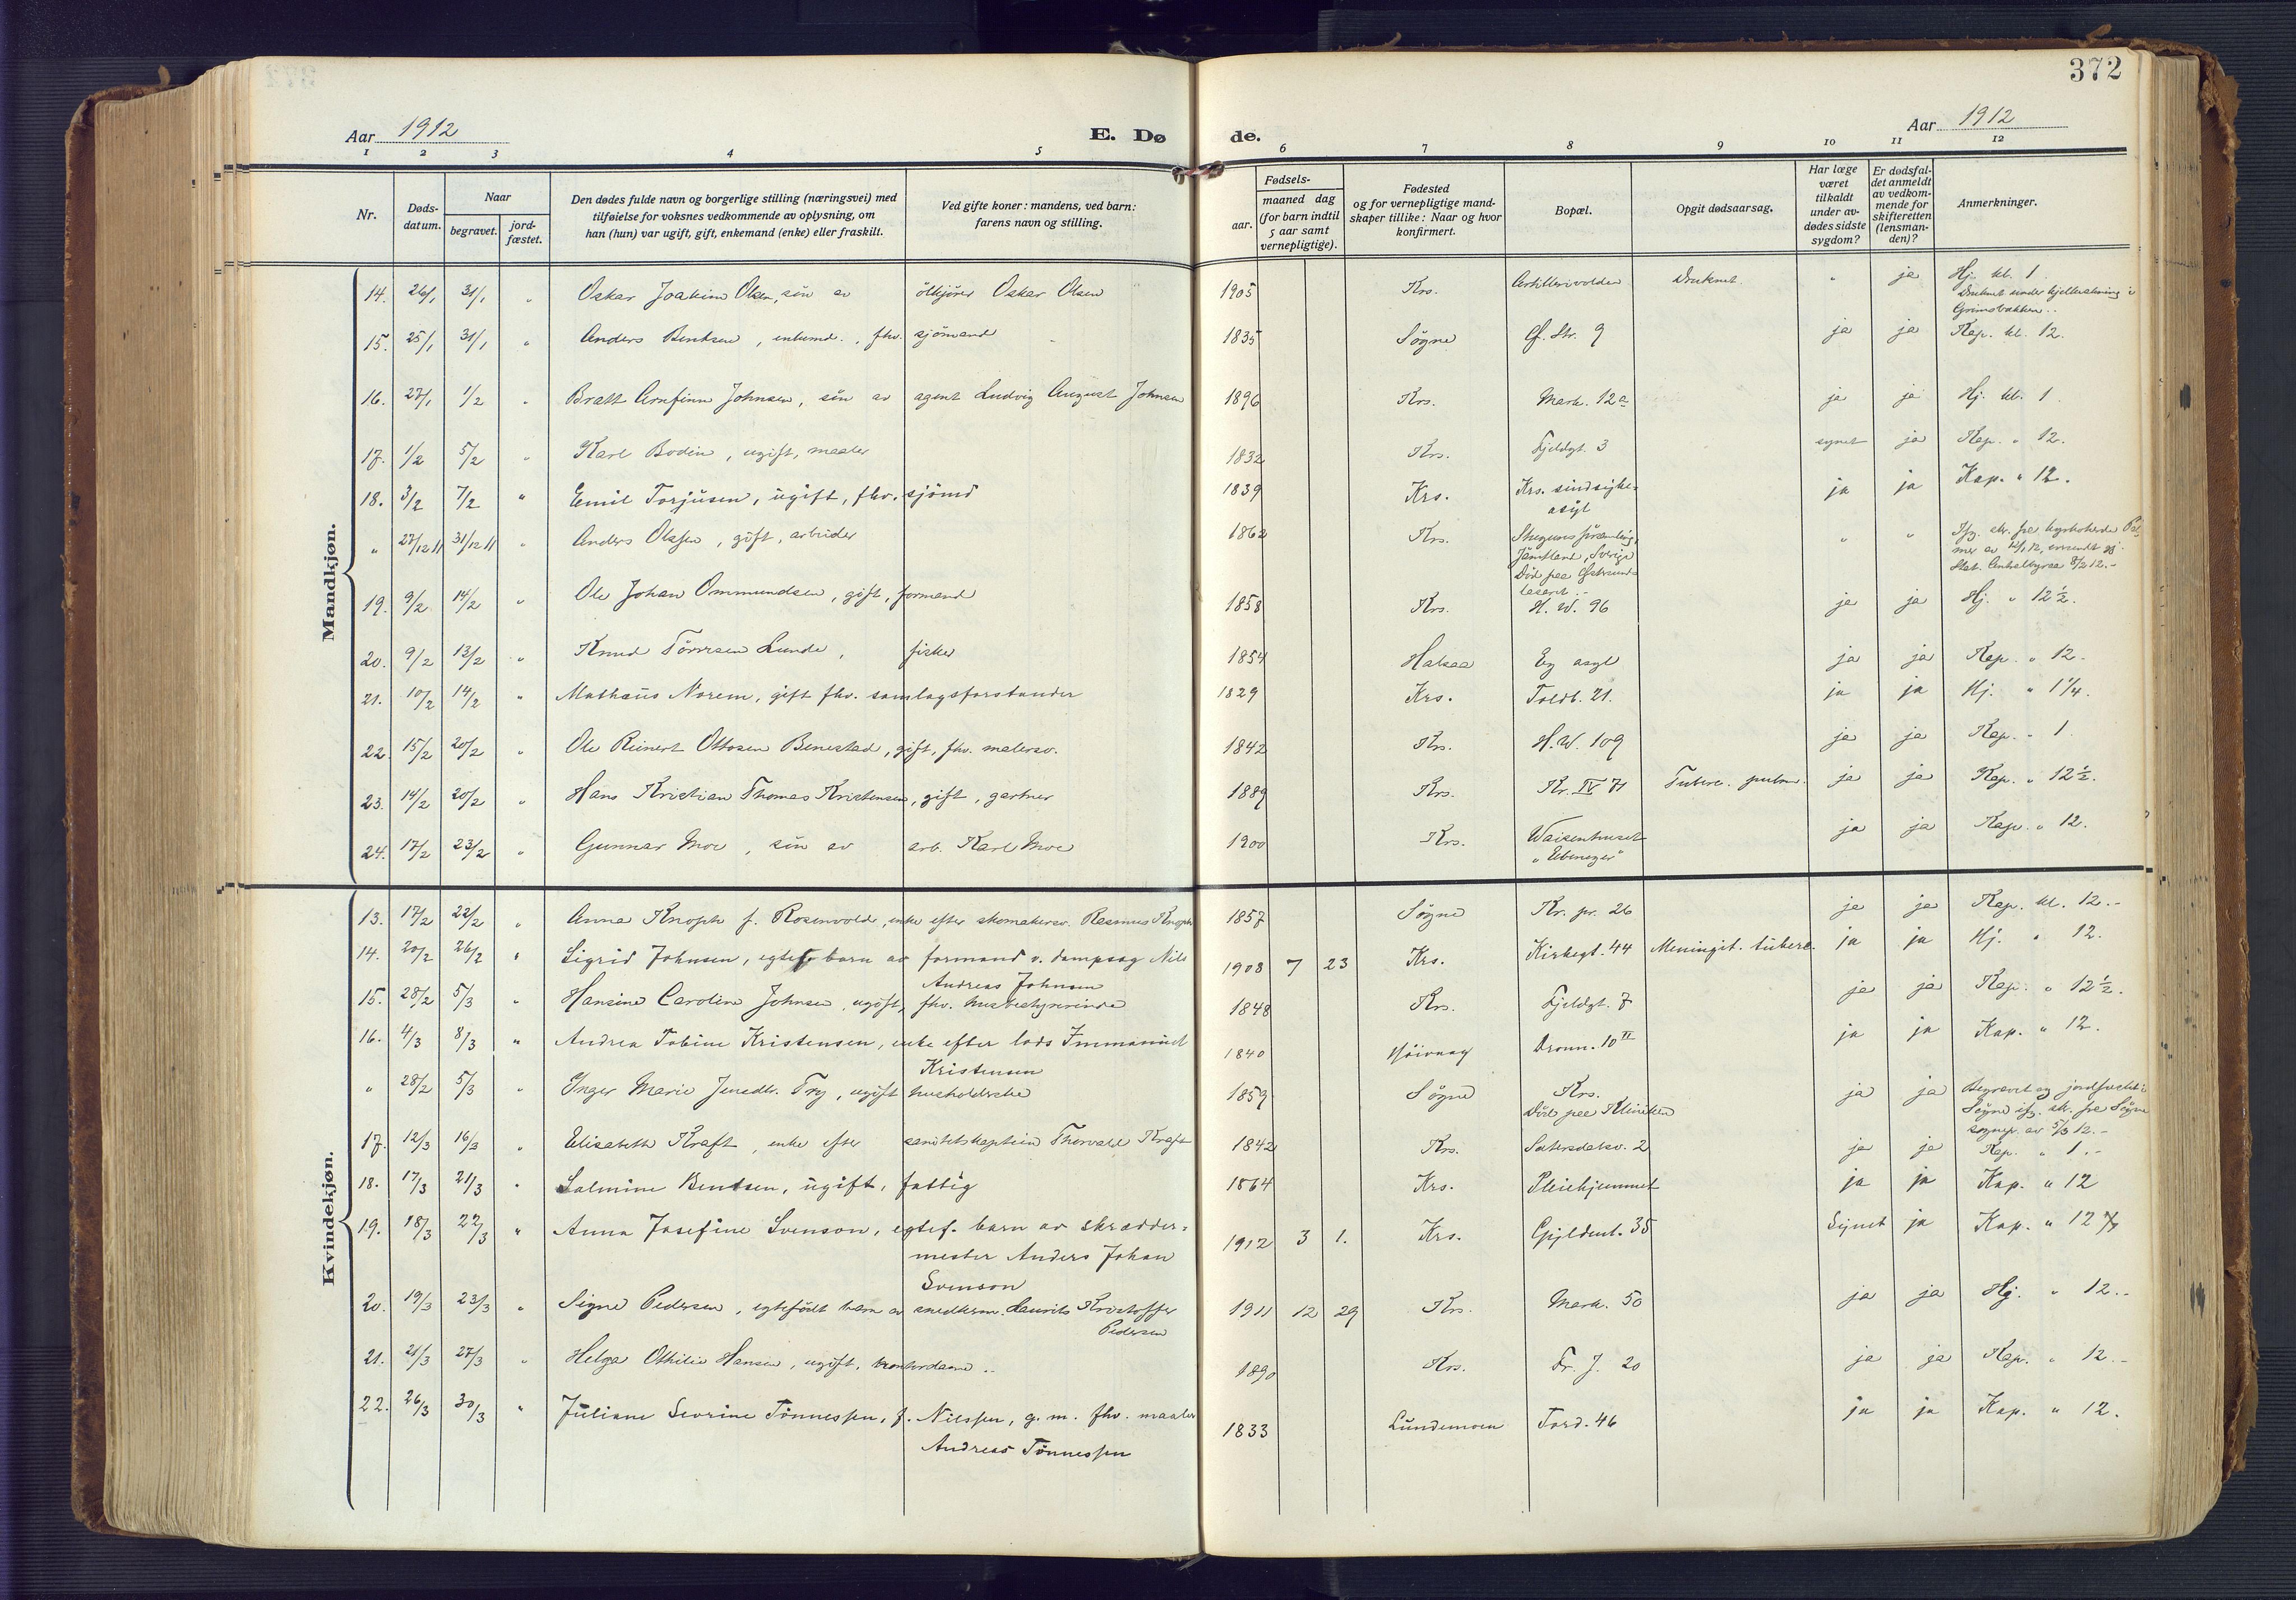 372
Aar 1912
E. Dø de.
Aar 1912
1 2 3 4 5 6 7 8 9 10 11 12
Nr.
Døds-datum.
Naar
begravet. jord-fæstet.
Den dødes fulde navn og borgerlige stilling (næringsvei) med
tilføielse for voksnes vedkommende av oplysning, om
han (hun) var ugift, gift, enkemand (enke) eller fraskilt.
Ved gifte koner: mandens, ved barn:
farens navn og stilling.
Fødsels-
aar. maaned dag
(for barn indtil
5 aar samt
vernepligtige).
Fødested
og for vernepligtige mand-
skaper tillike: Naar og hvor
konfirmert.
Bopæl.
Opgit dødsaarsag.
Har læge
været
tilkaldt
under av-
dødes sidste
sygdom?
Er dødsfal-
det anmeldt
av vedkom-
mende for
skifteretten
(lensman-
den)?
Anmerkninger.
Mandkjøn.
14. 26/1 31/1 " Oskar Joakim Olsen, søn av ølkjører Oskar Olsen 1905 Krs. Artillerivolden Druknet. " ja Hj. kl. 1.
Druknet under kjelkeakning i
Grimsbakken..
15. 25/1 31/1 " Anders Bentsen, enkemd., fhv. sjømand 1835 Søgne Gf. Str. 9 ja ja Kap. kl. 12.
16. 27/1 1/2 " Bratt Arnfinn Johnsen, søn av agent Ludvig August Johnsen 1896 Krs. Mark. 12a ja ja Hj. kl. 1
17. 1/2 5/2 " Karl Bodin, ugift, maaler 1832 Krs. Fjeldgt. 3 synet ja Kap. " 12.
18. 3/2 7/2 " Emil Torjusen, ugift, fhv. sjømd 1839 Krs. Krs. sindsyge-
asyl ja ja Kap. " 12.
" 27/12 11 31/12 11 " Anders Olsen, gift, arbeider 1862 Krs.
Jämtland, Sverige
Død paa Østersunds
lasaret.- " " Ifg. skr. fra kyrkoherde Pal-
mer av 12/1 12, innsendt gj.
Stat. Centralbyraa 8/2 12.-
19. 9/2 14/2 " Ole Johan Ommundsen, gift, formand 1858 Krs. H. W. 96 ja ja Hj. " 12½.
20. 9/2 13/2 " Knud Tørresen Lunde, fisker 1854 Halsaa Eg asyl ja ja Kap. " 12.
21. 10/2 14/2 " Mathæus Norem, gift fhv. samlagsforstander 1829 Krs. Toldb. 21. ja ja Hj. " 1¼.
22. 15/2 20/2 " Ole Reinert Ottosen Benestad, gift, fhv. malersv. 1842 Krs. H. W. 109 ja ja Kap. " 1
23. 14/2 20/2 " Hans Kristian Thomas Kristensen, gift, gartner 1889 Krs. Kr. IV 71 Tuberc. pulm. ja ja Kap. " 12½.
24. 17/2 23/2 " Gunnar Moe, søn av arb. Karl Moe 1900 Krs. Waisenhuset
"Ebenezer" ja ja Kap. " 12.
Kvindekjøn.
13. 17/2 22/2 " Anna Knoph f. Rosenvold, enke efter skomakersv. Rasmus Knoph 1857 Søgne Kr. pr. 26 ja ja Kap. kl. 12.-
14. 20/2 26/2 " Sigrid Johnsen, egtef. barn av formand v. dampsag Nils
Andreas Johnsen 1908 7 23 Krs. Kirkegt. 44 Meningit. tuberc. ja ja Hj. " 12.
15. 28/2 5/3 " Hansine Caroline Johnsen, ugift, fhv. husbestyrerinde 1848 Krs. Fjeldgt. 7 ja ja Kap. " 12½.
16. 4/3 8/3 " Andrea Tobine Kristensen, enke efter lods Immanuel
Kristensen 1840 Høivaag Dronn. 10 II ja ja Kap. " 12.
" 28/2 5/3 " Inger Marie Jensdtr. Try, ugift husholderske 1859 Søgne Krs.
Død paa Kliniken ja ja Begravet og jordfæstet i
Søgne ifg. skr. fra Søgne
sogнepr. av 5/3 12.-
17. 12/3 16/3 " Elisabeth Kraft, enke efter sanitetskaptein Thorvald Kraft 1842 Krs. Sætersdalsv. 2 ja ja Kap. " 1.-
18. 17/3 21/3 " Salmine Bentsen, ugift, fattig 1864 Krs. Pleiehjemmet ja ja Kap. " 12
19. 18/3 22/3 " Anna Josefine Svenson, egtef. barn av skrædder-
mester Anders Johan
Svenson 1912 3 1. Krs. Gyldenl. 35 Synet ja Kap. " 12
20. 19/3 23/3 " Signe Pedersen, egtefødt barn av snedkerm. Laurits Kristoffer
Pedersen 1911 12 29 Krs. Mark. 50 ja ja Hj. " 12.-
21. 21/3 27/3 " Helga Othilie Hansen, ugift, kontordame.- 1890 Krs. Fr. J. 20 ja ja Kap. " 12.-
22. 26/3 30/3 " Juliane Sevrine Tønnessen, f. Nilssen, g. m. fhv. maaler
Andreas Tønnessen 1833 Lundemoen Tord. 46 ja ja Kap. " 12.